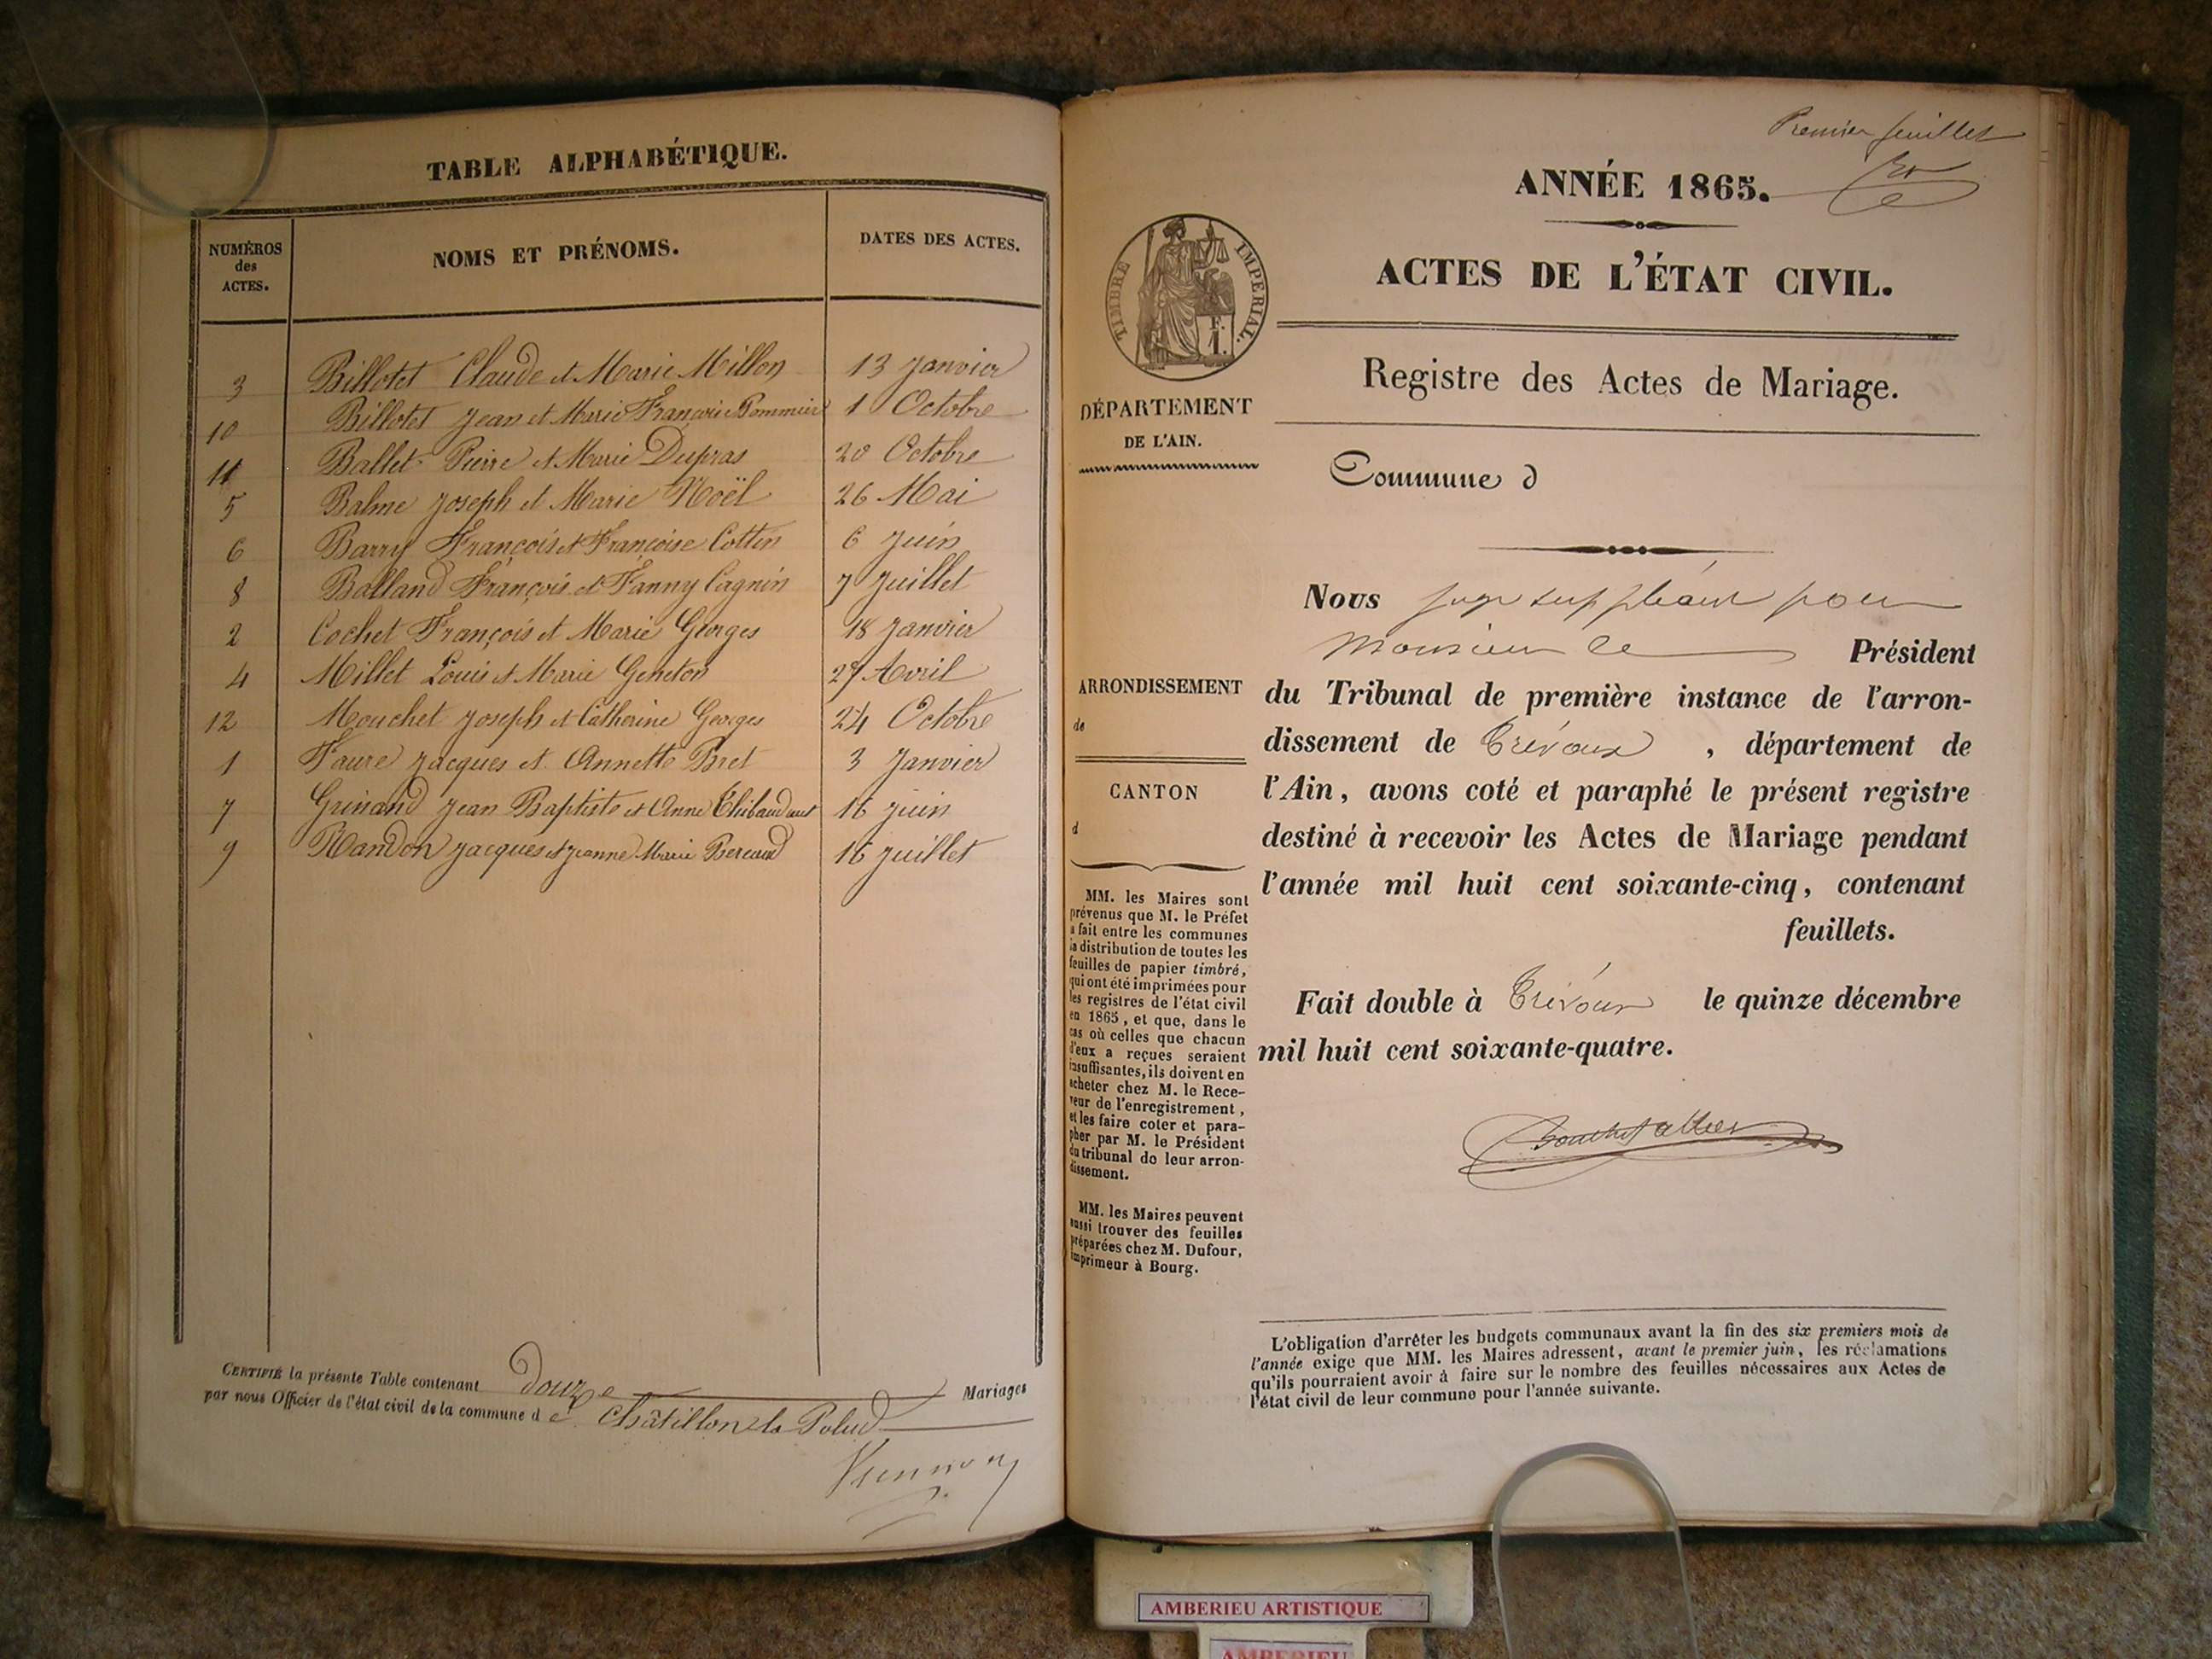 TABLE ALPHABÉTIQUE.
NUMÉROS
des
ACTES.
NOMS ET PRÉNOMS.
DATES DES ACTES.
3 Billotet Claude et Marie Millon 13 Janvier
10 Billotet Jean et Marie Françoise Pommier 1 Octobre
11 Ballet Pierre et Marie Dupras 20 Octobre
5 Balme Joseph et Marie Noël 26 Mai
6 Barry François et Françoise Cottin 6 Juin
8 Balland François et Fanny Cagnin 7 Juillet
2 Cochet François et Marie Georges 18 Janvier
4 Millet Louis et Marie Geneton 27 Avril
12 Mouchet Joseph et Catherine Georges 24 Octobre
1 Faure Jacques et Annette Bret 3 Janvier
7 Grinand Jean Baptiste et Anne 16 Juin
9 Randon Jacques et Jeanne Marie Bereaud 16 Juillet
CERTIFIÉ la présente Table contenant douze Mariages
par nous Officier de l'état civil de la commune d e Châtillon la Palud
Premier feuillet
ANNÉE 1865.
ACTES DE L'ÉTAT CIVIL.
TIMBRE IMPÉRIAL.
Registre des Actes de Mariage.
DÉPARTEMENT
DE L'AIN.
Commune d
Nous juge suppléant pour
Monsieur le Président
du Tribunal de première instance de l'arron-
dissement de Trévoux , département de
l'Ain, avons coté et paraphé le présent registre
destiné à recevoir les Actes de Mariage pendant
l'année mil huit cent soixante-cinq, contenant
feuillets.
Fait double à Trévoux le quinze décembre
mil huit cent soixante-quatre.
ARRONDISSEMENT
de
CANTON
d
MM. les Maires sont
prévenus que M. le Préfet
a fait entre les communes
la distribution de toutes les
feuilles de papier timbré,
qui ont été imprimées pour
les registres de l'état civil
en 1865, et que, dans le
cas où celles que chacun
d'eux a reçues seraient
insuffisantes, ils doivent en
acheter chez M. le Rece-
veur de l'enregistrement,
et les faire coter et para-
pher par M. le Président
du tribunal de leur arron-
dissement.
MM. les Maires peuvent
aussi trouver des feuilles
préparées chez M. Dufour,
imprimeur à Bourg.
L'obligation d'arrêter les budgets communaux avant la fin des six premiers mois de
l'année exige que MM. les Maires adressent, avant le premier juin, les réclamations
qu'ils pourraient avoir à faire sur le nombre des feuilles nécessaires aux Actes de
l'état civil de leur commune pour l'année suivante.
AMBERIEU ARTISTIQUE
AMBERIEU